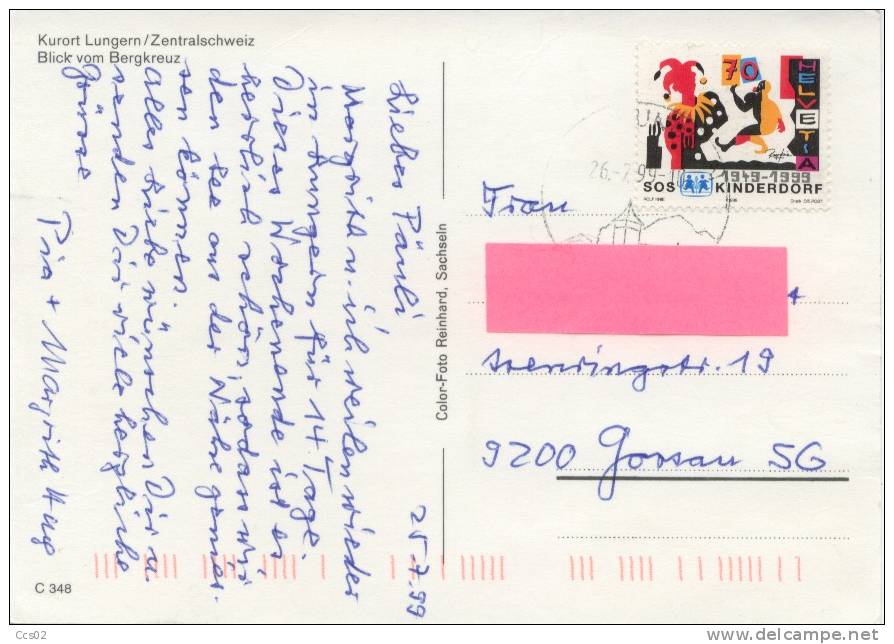 Kurort Lungern/Zentralschweiz
Blick vom Bergkreuz
25.7.99
Liebes Päuli
Margrith u. ich weilen wieder
in Lungern für 14 Tage.
Dieses Wochenende ist es
herrlich schön, sodass wir
den See aus der Nähe genies-
sen können.
Alles Liebe wünschen Dir u.
senden Dir viele herzliche
Grüsse
Pia + Margrith Hug
C 348
Color-Foto Reinhard, Sachseln
70
HELVETIA
1949-1999
SOS KINDERDORF
26.-7.99-
Frau
19
9200 Gossau SG
Ccs02
delcampe.net